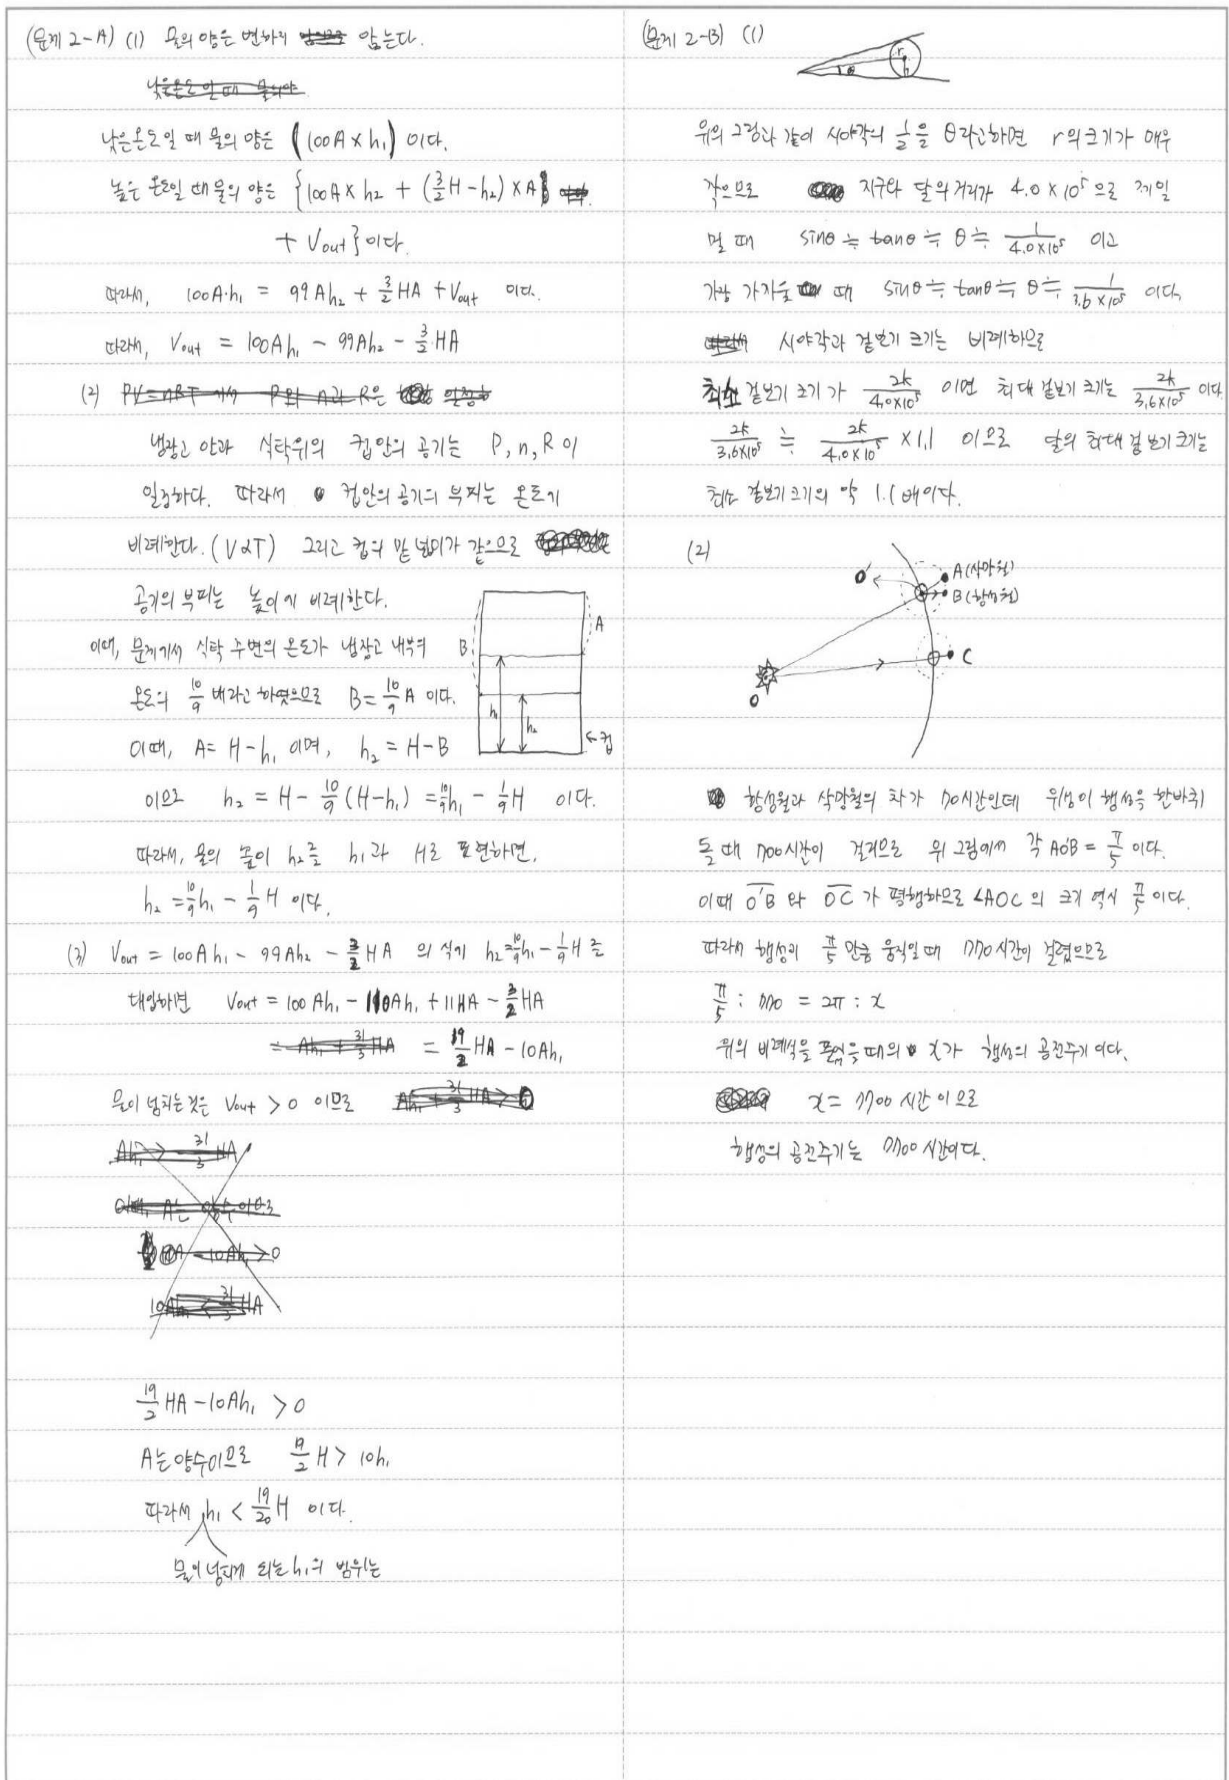 (문제 2-A) (1) 물의 양은 변하지 않는다.
낮은온도일 때 물의 양
낮은온도일 때 물의 양은 (100A×h₁) 이다.
높은 온도일 때 물의 양은 {100A×h₂ + (3/2H-h₂)×A
+ Vout} 이다.
따라서, 100A·h₁ = 99Ah₂ + 3/2HA + Vout 이다.
따라서, Vout = 100Ah₁ - 99Ah₂ - 3/2HA
(2) PV=nRT 에서 P와 n과 R은 일정하
냉장고 안과 식탁위의 컵안의 공기는 P, n, R이
일정하다. 따라서 컵안의 공기의 부피는 온도에
비례한다. (V∝T) 그리고 컵의 밑넓이가 같으므로
공기의 부피는 높이에 비례한다.
이때, 문제에서 식탁 주변의 온도가 냉장고 내부의
온도의 10/9 배라고 하였으므로 B = 10/9 A 이다.
이때, A = H-h₁ 이며, h₂ = H-B
B
A
h₁
h₂
←컵
이므로 h₂ = H - 10/9(H-h₁) = 10/9h₁ - 1/9H 이다.
따라서, 물의 높이 h₂를 h₁과 H로 표현하면,
h₂ = 10/9h₁ - 1/9H 이다.
(3) Vout = 100Ah₁ - 99Ah₂ - 3/2HA 의 식에 h₂=10/9h₁ - 1/9H 를
대입하면 Vout = 100Ah₁ - 110Ah₁ + 11HA - 3/2HA
= Ah₁ + 31/3HA = 19/2HA - 10Ah₁
물이 넘치는 것은 Vout > 0 이므로 Ah₁ + 31/3HA > 0
Ah₁ > -31/3HA
이때, A는 양수이므로
HA - 10Ah₁ > 0
10Ah₁ < 31/3HA
19/2HA - 10Ah₁ > 0
A는 양수이므로 19/2H > 10h₁
따라서 h₁ < 19/20H 이다.
물이 넘치게 되는 h₁의 범위는
(문제 2-B) (1)
r
θ
위의 그림과 같이 시야각의 1/2을 θ라고하면 r의크기가 매우
작으므로 지구와 달의거리가 4.0×10⁵으로 제일
멀 때 sinθ ≒ tanθ ≒ θ ≒ 1/4.0×10⁵ 이고
가장 가까울 때 sinθ ≒ tanθ ≒ θ ≒ 1/3.6×10⁵ 이다.
따라서 시야각과 겉보기 크기는 비례하므로
최소 겉보기 크기가 2k/4.0×10⁵ 이면 최대 겉보기 크기는 2k/3.6×10⁵ 이다.
2k/3.6×10⁵ ≒ 2k/4.0×10⁵ ×1.1 이므로 달의 최대 겉보기크기는
최소 겉보기크기의 약 1.1배이다.
(2)
O'
A(삭망월)
B(항성월)
C
O
항성월과 삭망월의 차가 70시간인데 위성이 행성을 한바퀴
돌 때 700시간이 걸리므로 위 그림에서 각 AO'B = π/5 이다.
이때 O'B 와 OC 가 평행하므로 ∠AOC 의 크기 역시 π/5 이다.
따라서 행성이 π/5 만큼 움직일때 770시간이 걸렸으므로
π/5 : 770 = 2π : x
위의 비례식을 풀었을때의 x가 행성의 공전주기 이다.
x = 7700 시간 이므로
행성의 공전주기는 7700 시간이다.